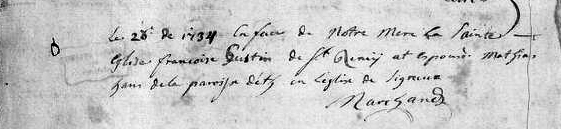 le 28 de 1734 En face de Notre Mere La Sainte
Eglise francoise Gustin de St Remij at espousé Mathias
hans de la paroisse d'éth en L'église de Signeux
Marchand